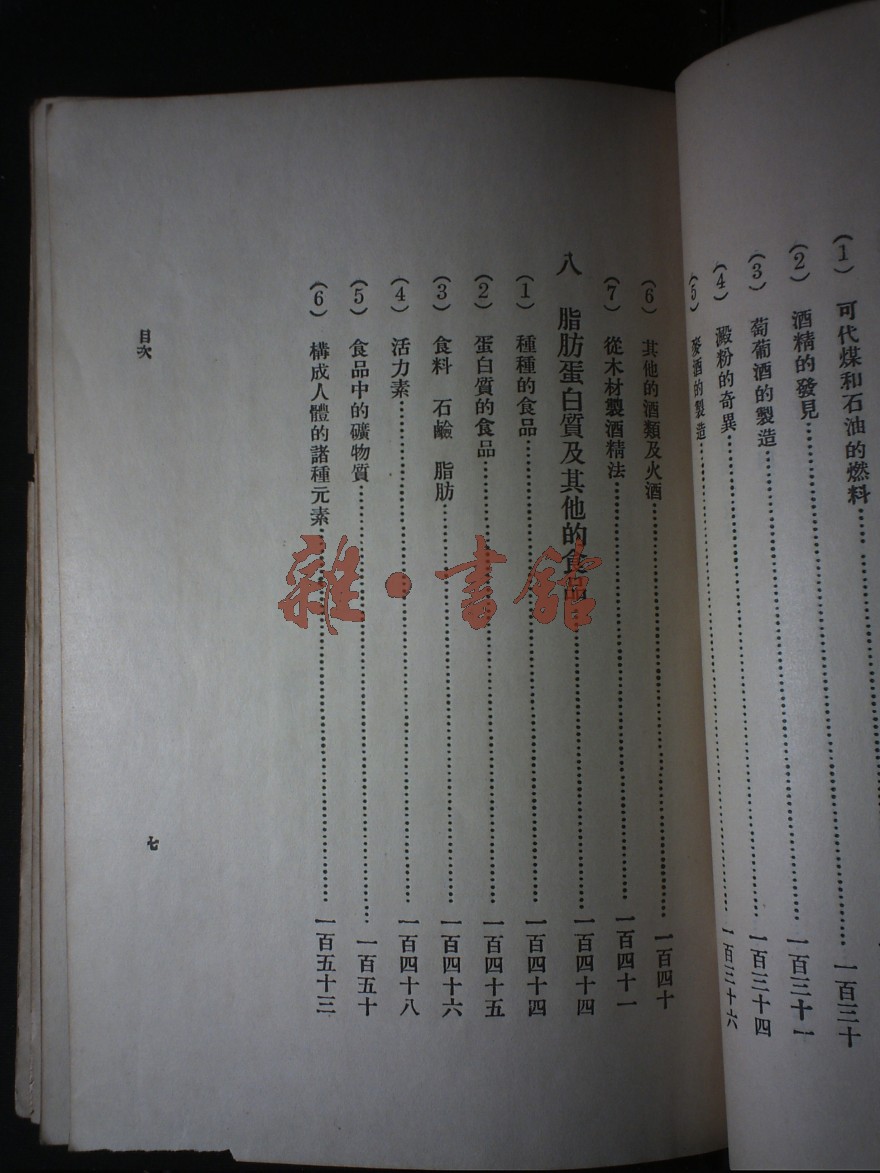 (1) 可代煤和石油的燃料 一百三十
(2) 酒精的發見 一百三十一
(3) 萄葡酒的製造 一百三十四
(4) 澱粉的奇異 一百三十六
(5) 麥酒的製造
(6) 其他的酒類及火酒 一百四十
(7) 從木材製酒精法 一百四十一
八 脂肪蛋白質及其他的食品 一百四十四
(1) 種種的食品 一百四十四
(2) 蛋白質的食品 一百四十五
(3) 食料 石鹼 脂肪 一百四十六
(4) 活力素 一百四十八
(5) 食品中的礦物質 一百五十
(6) 構成人體的諸種元素 一百五十三
目次
七
雜·書館